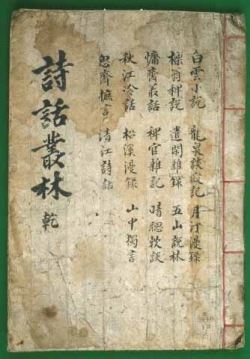 白雲小說 龍泉談寂記 月汀漫錄
櫟翁稗說 遣閑雜錄 五山說林
慵齋叢話 稗官雜記 晴窓軟談
秋江冷話 松溪漫錄 山中獨言
思齋摭言 清江詩話
詩話叢林 乾